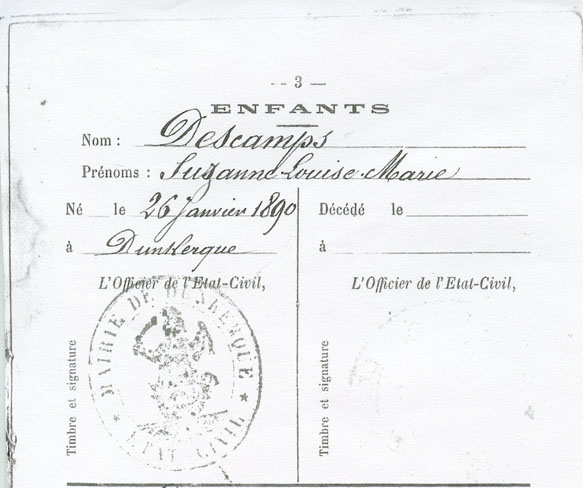 -- 3 —
ENFANTS
Nom : Descamps
Prénoms : Suzanne Louise Marie
Né le 26 Janvier 1890
à Dunkerque
L'Officier de l'Etat-Civil,
Timbre et signature
MAIRIE DE DUNKERQUE
* ETAT CIVIL *
Décédé le
à
L'Officier de l'Etat-Civil,
Timbre et signature